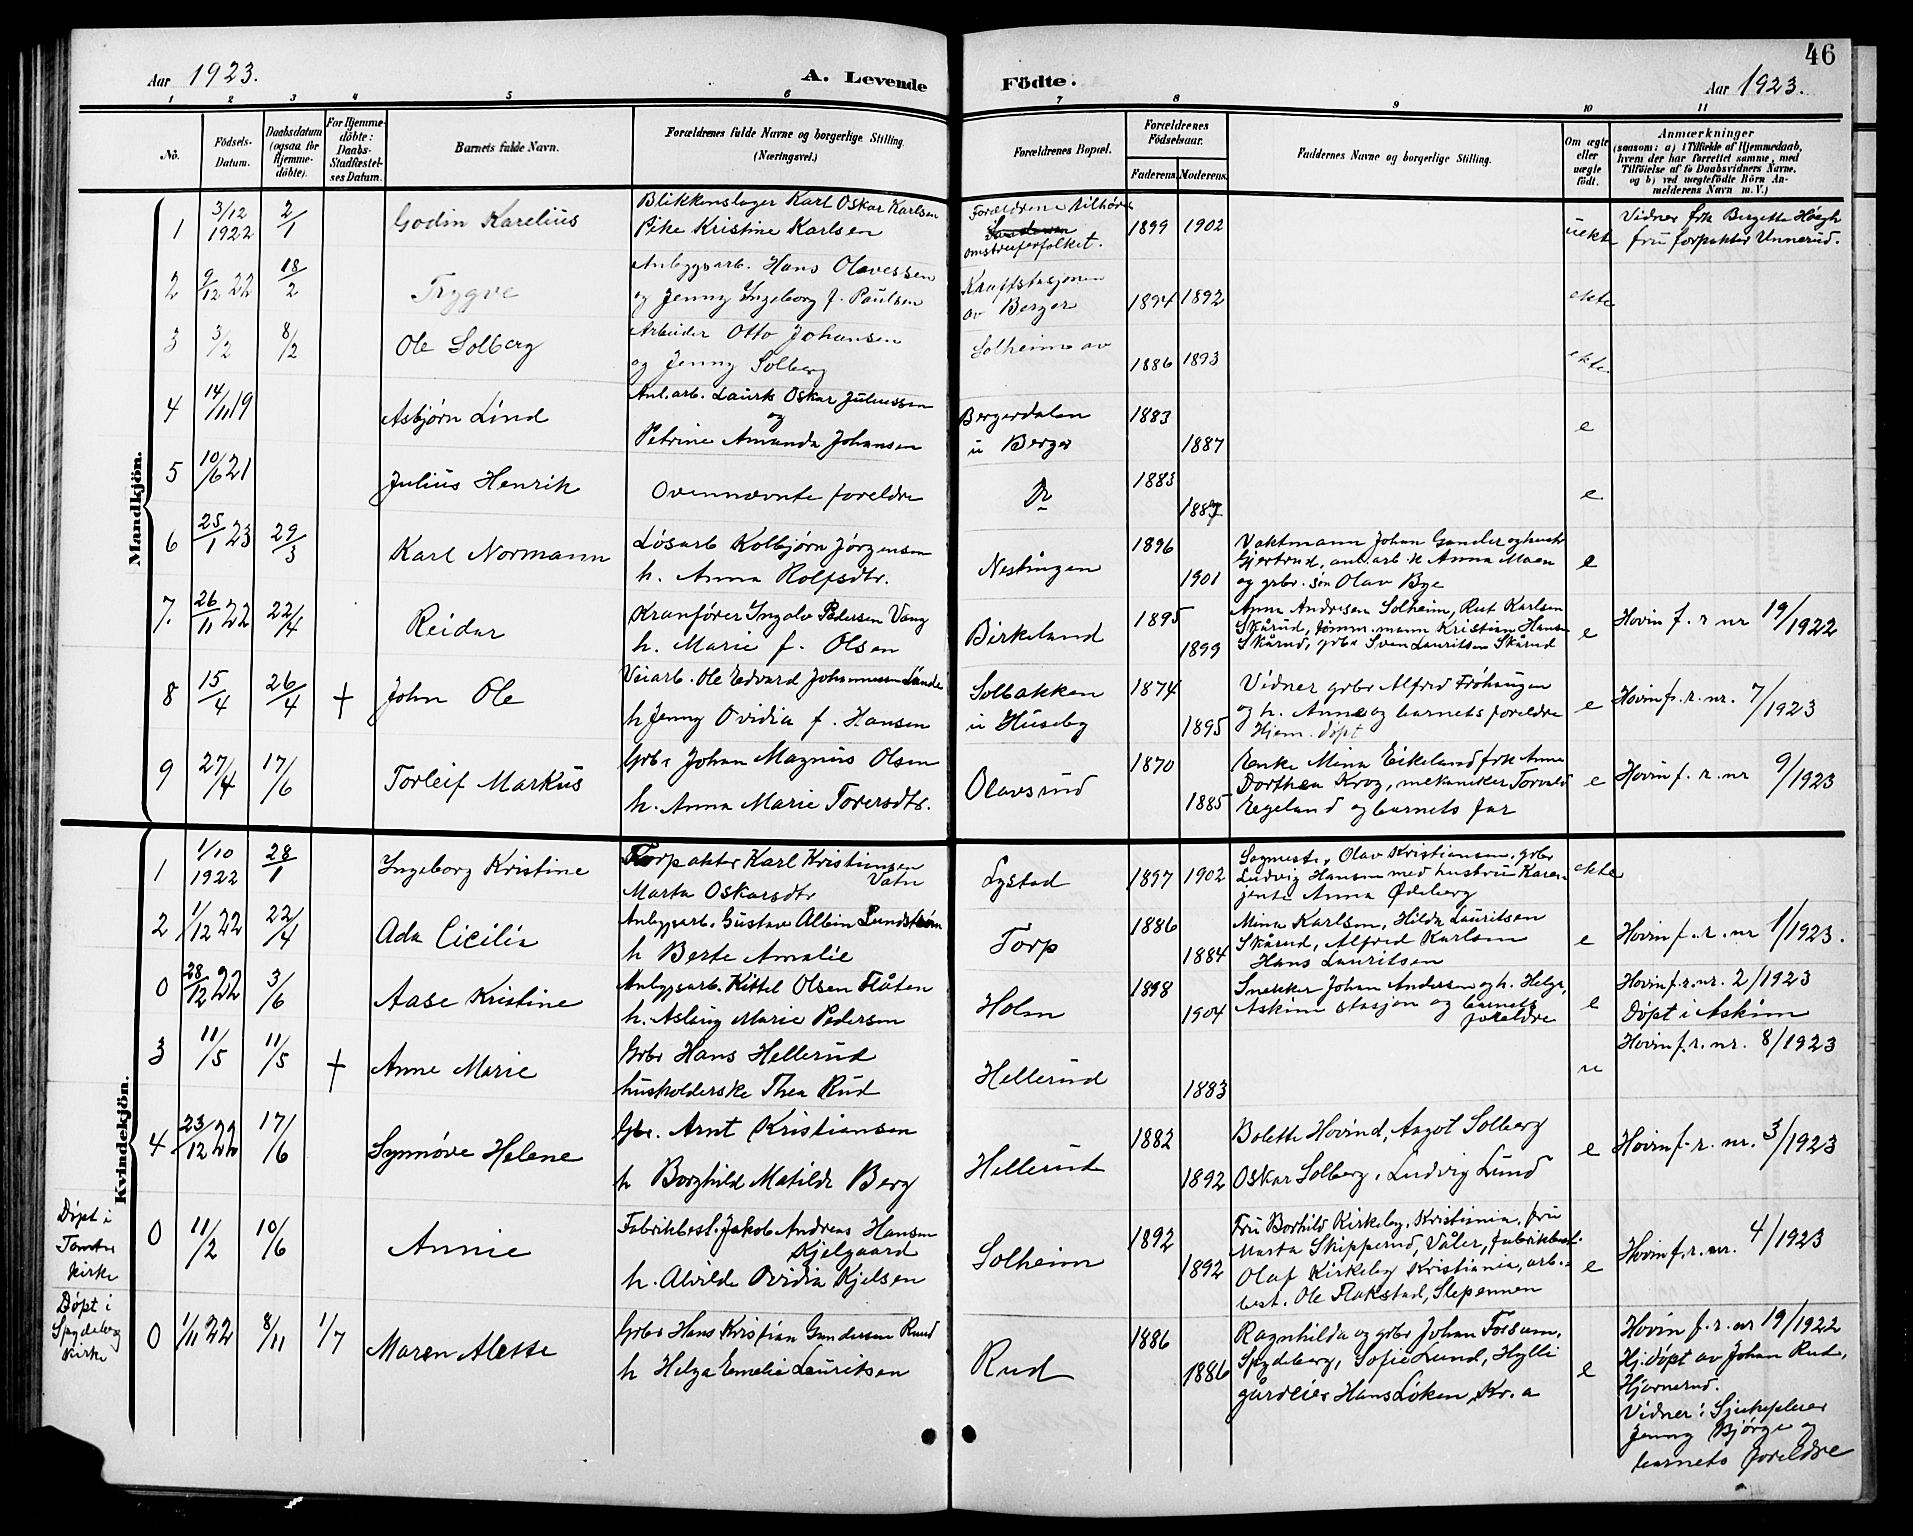 46
Aar 1923.
A. Levende Födte.
Aar 1923.
1 2 3 4 5 6 7 8 9 10 11
No.
Födsels-Datum.
Daabsdatum (ogsaa for Hjemme-döbte).
For Hjemme-döbte: Daabs-Stadfæstel-ses Datum.
Barnets fulde Navn.
Forældrenes fulde Navne og borgerlige Stilling. (Næringsvei.)
Forældrenes Bopæl.
Forældrenes Födselsaar.
Faderens. Moderens.
Faddernes Navne og borgerlige Stilling.
Om ægte eller uægte födt.
Anmærkninger
(saasom: a) i Tilfælde af Hjemmedaab,
hvem der har forrettet samme, med
Tilföielse af to Daabsvidners Navne,
og b) ved uægtefödte Börn An-
melderens Navn m. V.)
Mandkjön.
1 3/12 1922 2/1 Godin Karelius
Blikkenslager Karl Oskar Karlsen
Pike Kristine Karlsen
Forældrene tilhörer
omstreiferfolket.
1899 1902 uekte
Vidner frk Bergette Høegh
fru forpakter Unnerud.
2 9/12 22 18/2 Trygve
Anleggsarb. Hans Olavessen
og Jenny Ingeborg f. Paulsen
Kraftstasjonen
av Berger
1894 1892 ekte
3 3/2 8/2 Ole Solberg
Arbeider Otto Johansen
og Jenny Solberg
Solheim av
1886 1893 ekte.
4 14/11 19 Asbjørn Lind
Anl.arb. Laurits Oskar Juliussen
og
Petrine Amanda Johansen
Bergerdalen
u Berger
1883 1887 e
5 10/6 21 Julius Henrik
Ovennævnte foreldre
Do
1883 1887 e
6 25/1 23 29/3 Karl Normann
Løsarb Kolbjørn Jørgensen
h. Anna Rolfsdtr.
Nestingen
1896 1901
Vaktmann Johan Gander og hustr
Gjertrud, anl.arb. k Anna Moen
og grbr. søn Olav Bye
e
7. 26/11 22 22/4 Reidar
Kranfører Ingolv Pedersen Vang
h. Marie f. Olsen
Birkeland
1895 1899
Anna Andresen Solheim, Rut Karlsen
Skårud, tømm.mann Kristian Hansen
Skårud, grbr Sven Lauritsen Skårud
e
Hovin f. r nr 19/1922
8 15/4 26/4 + John Ole
Veiarb. Ole Edvard Johannessen Lande
h Jenny Ovidia f. Hansen
Solbakken
u Huseby
1874 1895
Vidner grbr Alfred Frøhaugen
og h. Anne og barnets foreldre
Hjem. døpt
e
Hovin f. r. nr. 7/1923
9 27/4 17/6 Torleif Markus
Grbr Johan Magnus Olsen
h. Anna Marie Torersdtr.
Olavsrud
1870 1885
Enke Mina Eikeland frk Anna
Dorthea Krog, mekaniker Torvald
Egeland og barnets far
e
Hovin f. r. nr 9/1923
Kvindekjön.
1 1/10 1922 28/1 Ingeborg Kristine
Forpakter Karl Kristiansen
Vatn
Marta Oskarsdtr
Lystad
1897 1902
Sagmest. Olav Kristiansen, grbr
Ludvig Hansen med hustru Karen
jente Anna Ødeberg
ekte
2 1/12 22 22/4 Ada Cicilia
Anleggsarb. Gustav Albin Lundstrøm
h Berte Amalie
Torp
1886 1884
Mina Karlsen, Hilda Lauritsen
Skårud, Alfred Karlsen
Hans Lauritsen
e
Hovin f. r. nr 1/1923.
0 28/12 22 3/6 Aase Kristine
Anleggsarb. Kittel Olsen Flåten
h. Aslaug Marie Pedersen
Holm
1898 1904
Snekker Johan Andersen og h. Helga,
Askim stasjon og barnets
foreldre
e
Hovin f. r. nr. 2/1923
Døpt i Askim
3 11/5 11/5 + Anne Marie
Grbr Hans Hellerud
husholderske Thea Rud
Hellerud
1883
u
Hovin f. r. nr. 8/1923
4 23/12 22 17/6 Synnøve Helene
Gbr. Arnt Kristiansen
h Borghild Matilde Berg
Hellerud
1882 1892
Bolette Hovind, Aagot Solberg
Oskar Solberg, Ludvig Lund
e
Hovin f. r. nr. 3/1923
Døpt i
Tomter
kirke
0 11/2 10/6 Annie
Fabrikbest. Jakob Andreas Hansen
Kjelgaard
h. Alvilde Ovidia Kjelsen
Solheim
1892 1892
Fru Borhild Kirkeby, Kristiania, fru
Marta Skipperud, Våler, fabrikbest.
Olaf Kirkeby Kristiania, arb.
best. Ole Flakstad, Slependen
e
Hovin f. r. nr. 4/1923
Døpt i
Spydeberg
Kirke
0 1/11 22 8/11 1/7 Maren Alette
Grbr Hans Kristian Gundersen Ruud
h Helga Emelie Lauritsen
Rud
1886 1886
Ragnhilda og grbr Johan Forsum,
Spydeberg, Sofie Lund, Hylli
gårdeier Hans Løken, Kr.a
e
Hovin f. r. nr 19/1922
Hj.døpt av Johan Rud,
Hjarnerud.
Vidner: Sjukepleier
Jenny Bjørge og
barnets foreldre